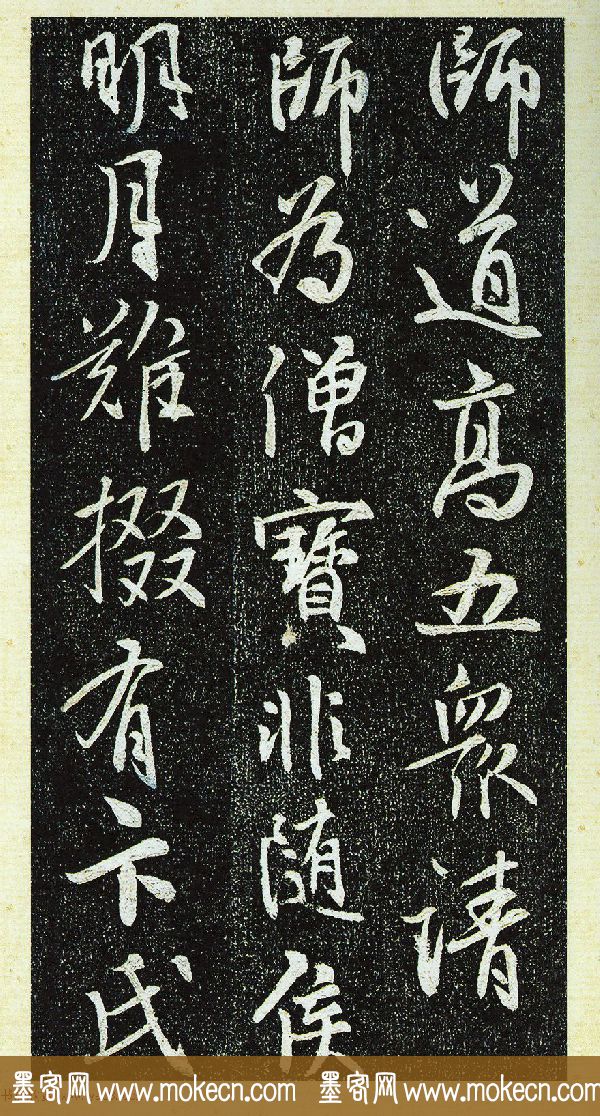 師道高五眾請
師為僧寶非随侯
明月難掇有卞氏
墨客网www.mokecn.com 墨客网www.mokecn.com